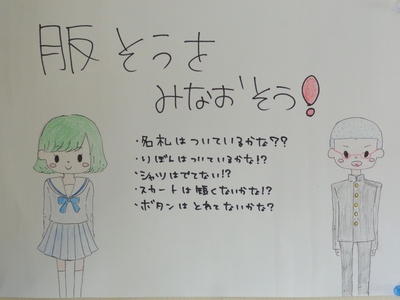 服そうを
みなおそう!
・名札はついているかな??
・りぼんはついているかな!?
・シャツはでてない!?
・スカートは短くないかな!?
・ボタンはとれてないかな?